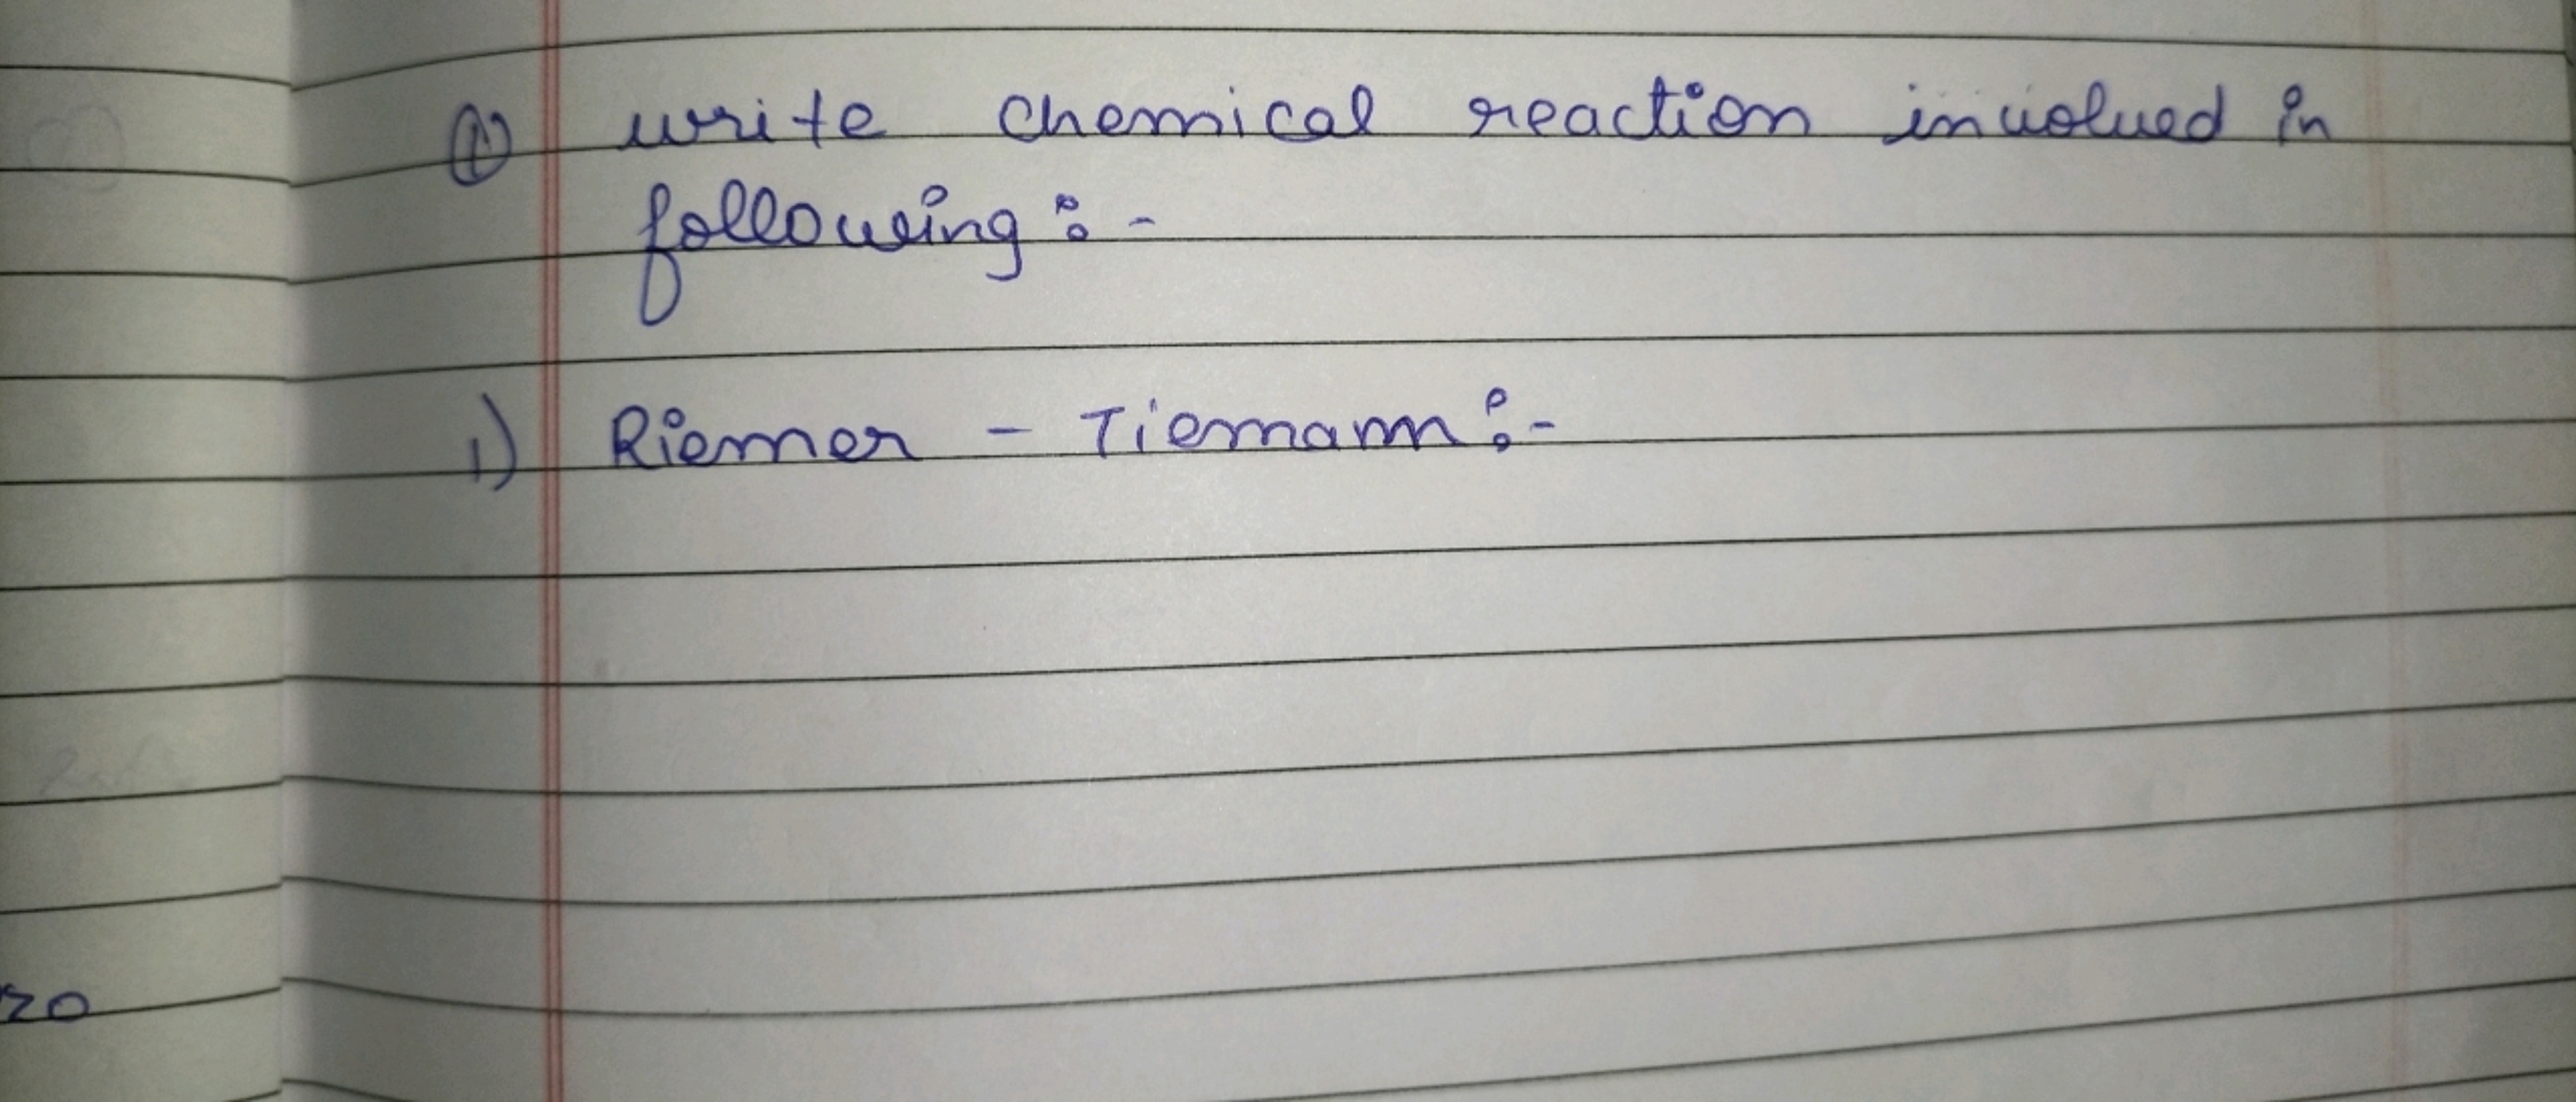 ① write chemical reaction involved in
following :-
1) Riemer - Tiemann :-
20